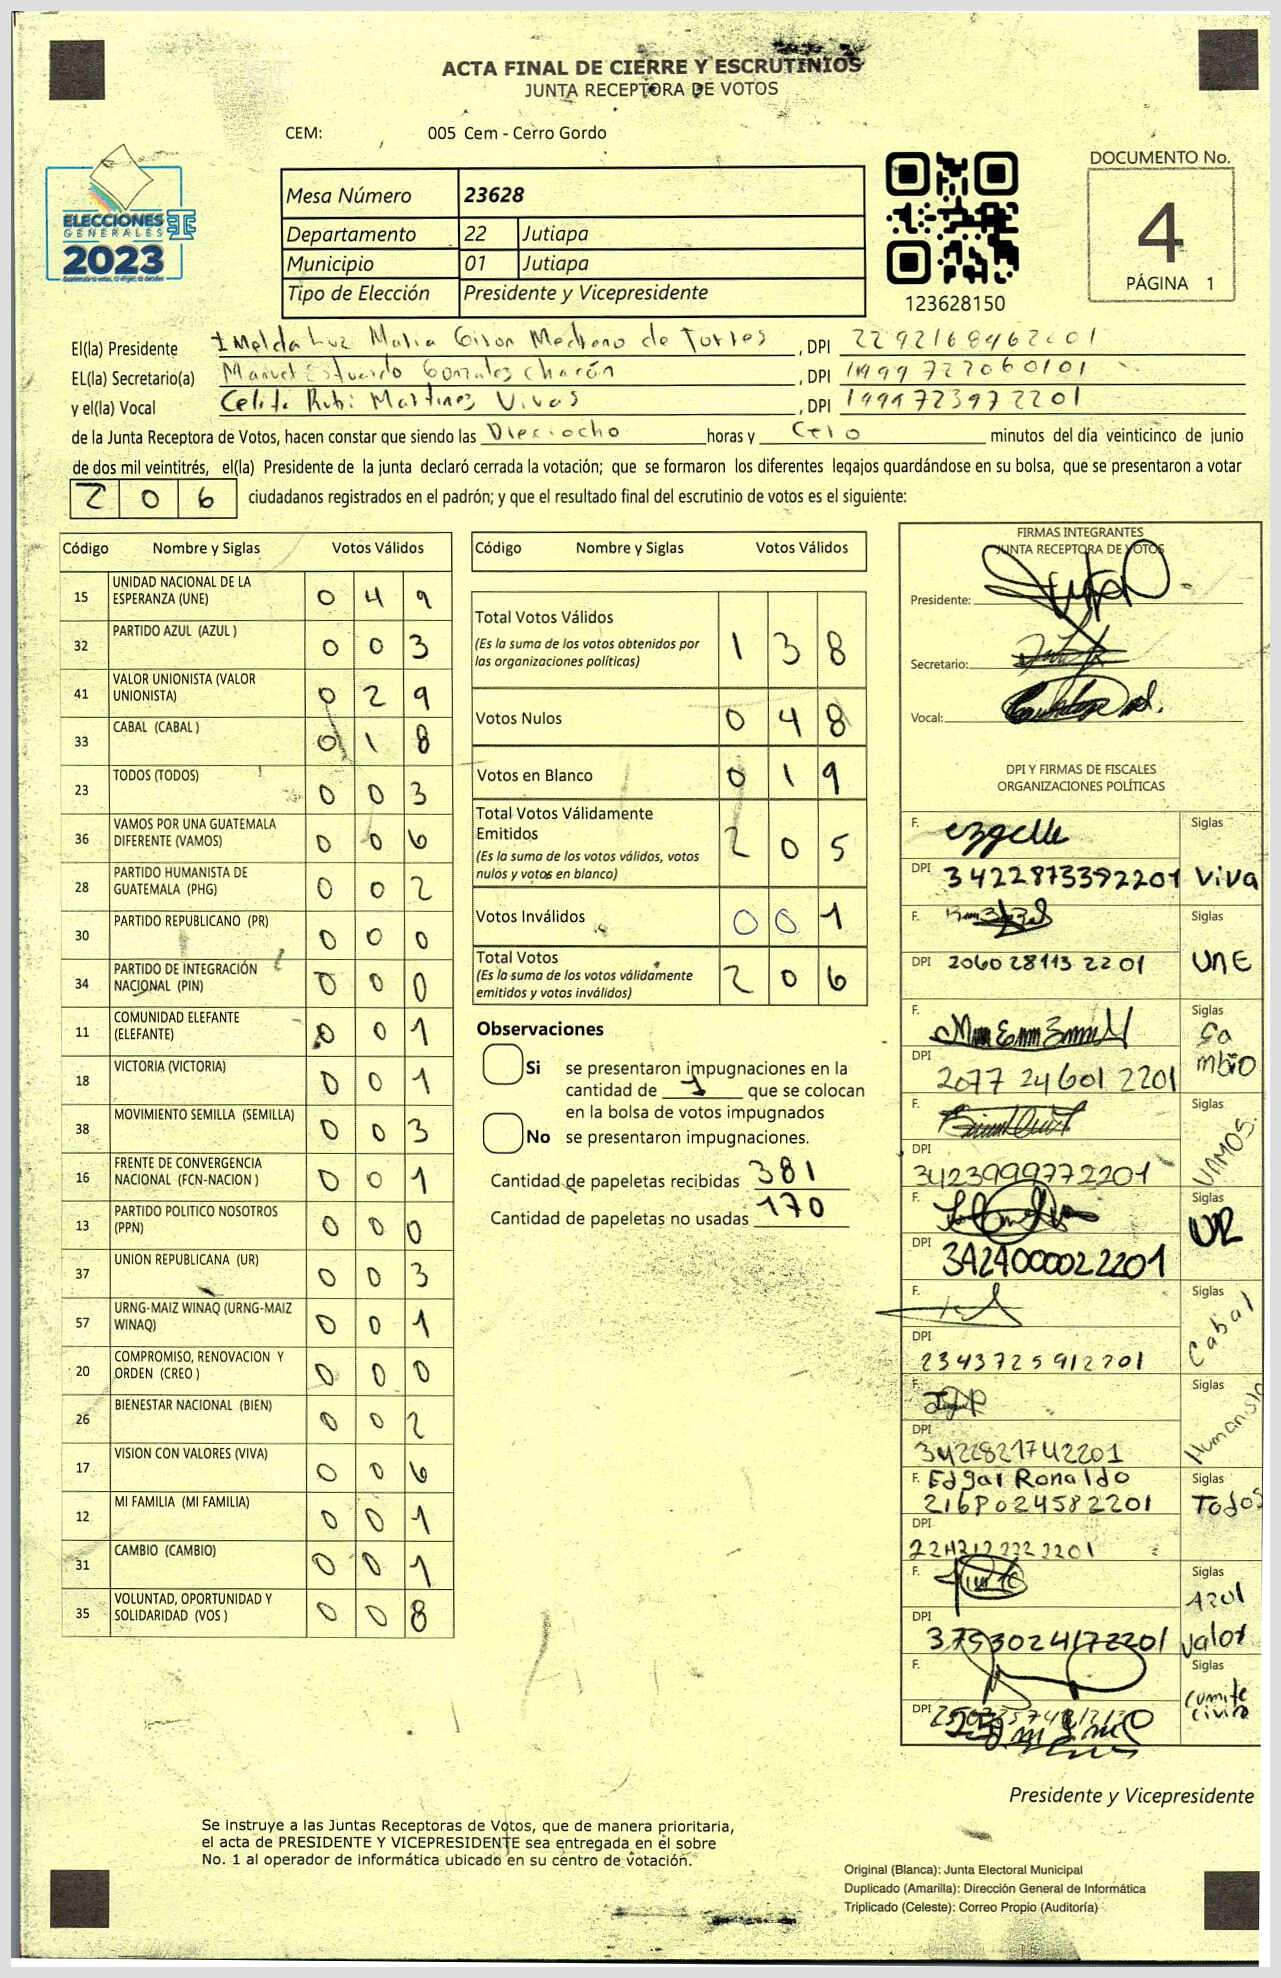 ACTA FINAL DE CIERRE Y ESCRUTINIOS
JUNTA RECEPTORA DE VOTOS
CEM: 005 Cem - Cerro Gordo
ELECCIONES
GENERALES
2023
Mesa Número 23628
Departamento 22 Jutiapa
Municipio 01 Jutiapa
Tipo de Elección Presidente y Vicepresidente
123628150
DOCUMENTO No.
4
PÁGINA 1
El(la) Presidente Imelda Luz Maria Giron Medrano de Torres , DPI 2292168462201
EL(la) Secretario(a) Manuel Estuardo Gonzales Chacón , DPI 1999727060101
y el(la) Vocal Celeste Rubi Martinez Vivas , DPI 1999723972201
de la Junta Receptora de Votos, hacen constar que siendo las Dieciocho horas y Cero minutos del día veinticinco de junio
de dos mil veintitrés, el(la) Presidente de la junta declaró cerrada la votación; que se formaron los diferentes legajos guardándose en su bolsa, que se presentaron a votar
206 ciudadanos registrados en el padrón; y que el resultado final del escrutinio de votos es el siguiente:
Código Nombre y Siglas Votos Válidos
15 UNIDAD NACIONAL DE LA ESPERANZA (UNE) 0 4 9
32 PARTIDO AZUL (AZUL ) 0 0 3
41 VALOR UNIONISTA (VALOR UNIONISTA) 0 2 9
33 CABAL (CABAL ) 0 1 8
23 TODOS (TODOS) 0 0 3
36 VAMOS POR UNA GUATEMALA DIFERENTE (VAMOS) 0 0 6
28 PARTIDO HUMANISTA DE GUATEMALA (PHG) 0 0 2
30 PARTIDO REPUBLICANO (PR) 0 0 0
34 PARTIDO DE INTEGRACIÓN NACIONAL (PIN) 0 0 0
11 COMUNIDAD ELEFANTE (ELEFANTE) 0 0 1
18 VICTORIA (VICTORIA) 0 0 1
38 MOVIMIENTO SEMILLA (SEMILLA) 0 0 3
16 FRENTE DE CONVERGENCIA NACIONAL (FCN-NACION ) 0 0 1
13 PARTIDO POLITICO NOSOTROS (PPN) 0 0 0
37 UNION REPUBLICANA (UR) 0 0 3
57 URNG-MAIZ WINAQ (URNG-MAIZ WINAQ) 0 0 1
20 COMPROMISO, RENOVACION Y ORDEN (CREO ) 0 0 0
26 BIENESTAR NACIONAL (BIEN) 0 0 2
17 VISION CON VALORES (VIVA) 0 0 6
12 MI FAMILIA (MI FAMILIA) 0 0 1
31 CAMBIO (CAMBIO) 0 0 1
35 VOLUNTAD, OPORTUNIDAD Y SOLIDARIDAD (VOS ) 0 0 8
Código Nombre y Siglas Votos Válidos
Total Votos Válidos 1 3 8
(Es la suma de los votos obtenidos por
las organizaciones políticas)
Votos Nulos 0 4 8
Votos en Blanco 0 1 9
Total Votos Válidamente
Emitidos 2 0 5
(Es la suma de los votos válidos, votos
nulos y votos en blanco)
Votos Inválidos 0 0 1
Total Votos 2 0 6
(Es la suma de los votos válidamente
emitidos y votos inválidos)
Observaciones
Si se presentaron impugnaciones en la
cantidad de 1 que se colocan
en la bolsa de votos impugnados
No se presentaron impugnaciones.
Cantidad de papeletas recibidas 381
Cantidad de papeletas no usadas 170
FIRMAS INTEGRANTES
JUNTA RECEPTORA DE VOTOS
Presidente:
Secretario:
Vocal:
DPI Y FIRMAS DE FISCALES
ORGANIZACIONES POLÍTICAS
F. Siglas
DPI 3422873392201 Viva
F. Siglas
DPI 2060 28113 2201 UNE
F. Siglas
DPI Cambio
2077 24601 2201
F. Siglas
DPI VAMOS
3423999772201
F. Siglas
DPI UR
3424000022201
F. Siglas
DPI Cabal
2343725912201
F. Siglas
DPI Humanista
3422821742201
F. Edgar Ronaldo Siglas
Todos
DPI
F. Siglas
Azul
DPI valor
F. Siglas
comite
civico
DPI
Presidente y Vicepresidente
Se instruye a las Juntas Receptoras de Votos, que de manera prioritaria,
el acta de PRESIDENTE Y VICEPRESIDENTE sea entregada en el sobre
No. 1 al operador de informática ubicado en su centro de votación.
Original (Blanca): Junta Electoral Municipal
Duplicado (Amarilla): Dirección General de Informática
Triplicado (Celeste): Correo Propio (Auditoría)